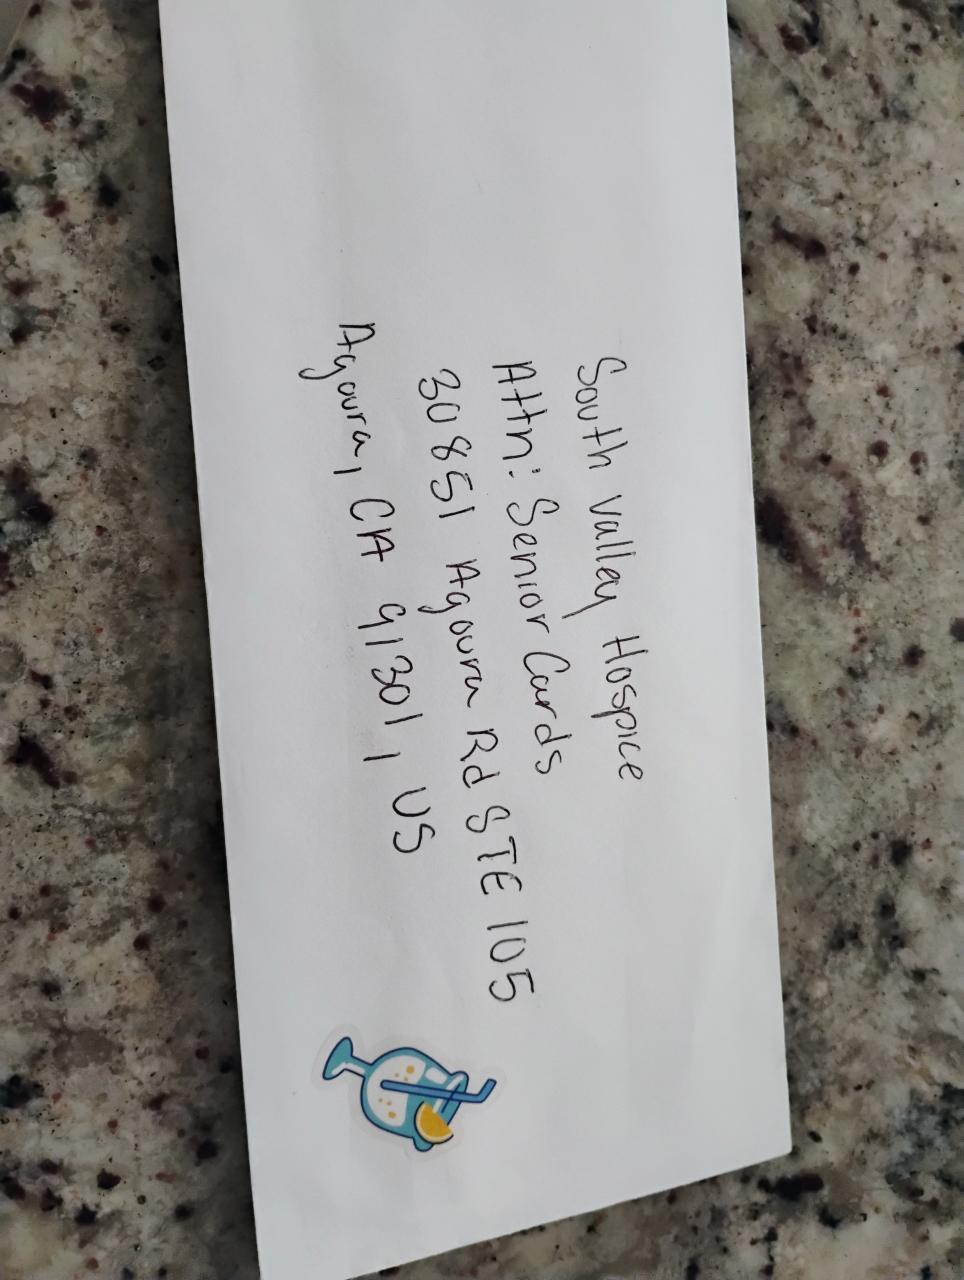 South Valley Hospice
Attn: Senior Cards
30851 Agoura Rd STE 105
Agoura, CA 91301, US